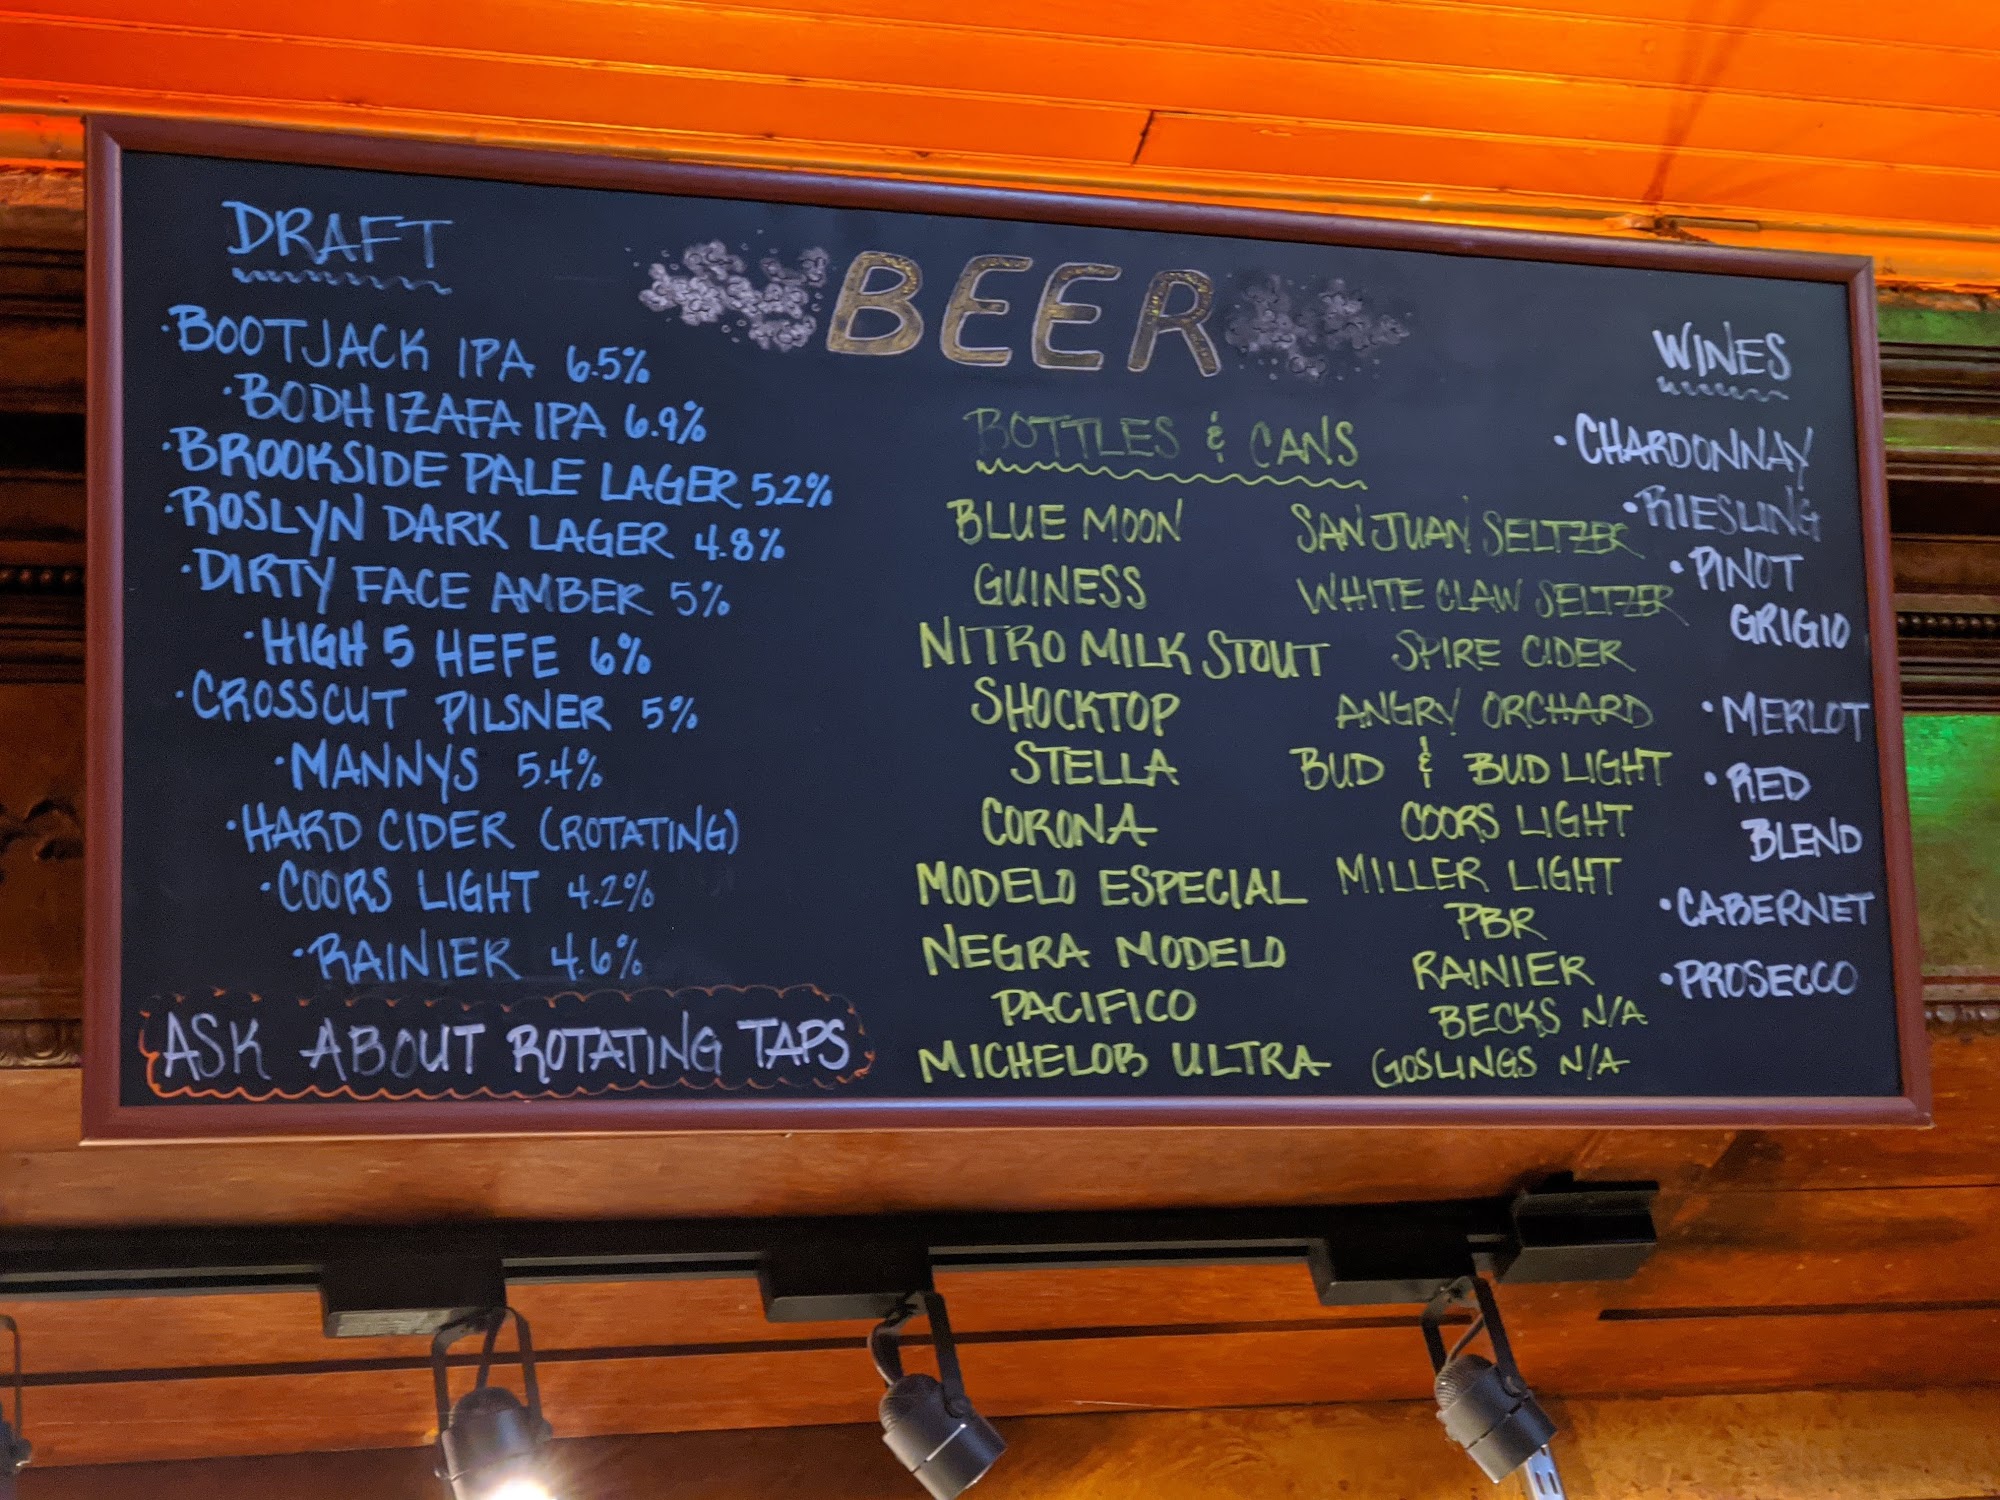 DRAFT
·BOOTJACK IPA 6.5%
·BODHIZAFA IPA 6.9%
·BROOKSIDE PALE LAGER 5.2%
·ROSLYN DARK LAGER 4.8%
·DIRTY FACE AMBER 5%
·HIGH 5 HEFE 6%
·CROSSCUT PILSNER 5%
·MANNYS 5.4%
·HARD CIDER (ROTATING)
·COORS LIGHT 4.2%
·RAINIER 4.6%
ASK ABOUT ROTATING TAPS
BEER
BOTTLES & CANS
BLUE MOON
GUINESS
NITRO MILK STOUT
SHOCKTOP
STELLA
CORONA
MODELO ESPECIAL
NEGRA MODELO
PACIFICO
MICHELOB ULTRA
SAN JUAN SELTZER
WHITE CLAW SELTZER
SPIRE CIDER
ANGRY ORCHARD
BUD & BUD LIGHT
COORS LIGHT
MILLER LIGHT
PBR
RAINIER
BECKS N/A
GOSLINGS N/A
WINES
·CHARDONNAY
·RIESLING
·PINOT
GRIGIO
·MERLOT
·RED
BLEND
·CABERNET
·PROSECCO